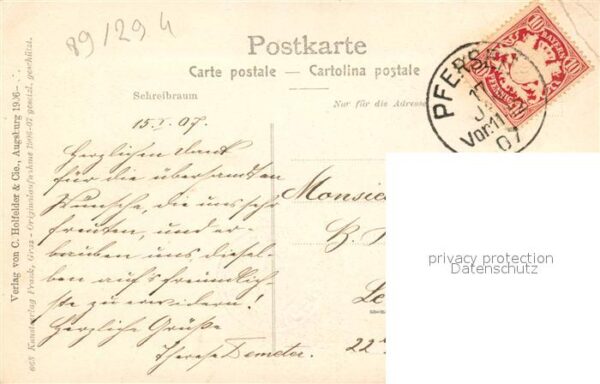 89/294
Postkarte
Carte postale — Cartolina postale
Schreibraum
Nur für die Adresse
15.I.07.
Herzlichen Dank
für die übersandten
Wünsche, die uns sehr
freuten, und er-
lauben uns dieSel-
ben aufs freundlich-
ste zu erwidern!
Herzliche Grüße
Therese Demeter.
Monsie
B.
Le
22
PFERS
17
Vor. 11-12
07
10 BAYERN 10
PFENNIG
Verlag von C. Holfelder & Cie., Augsburg 1906
663 Kunstverlag Frank, Graz - Originalaufnahme 1906-07 gesetzl. geschützt.
privacy protection
Datenschutz